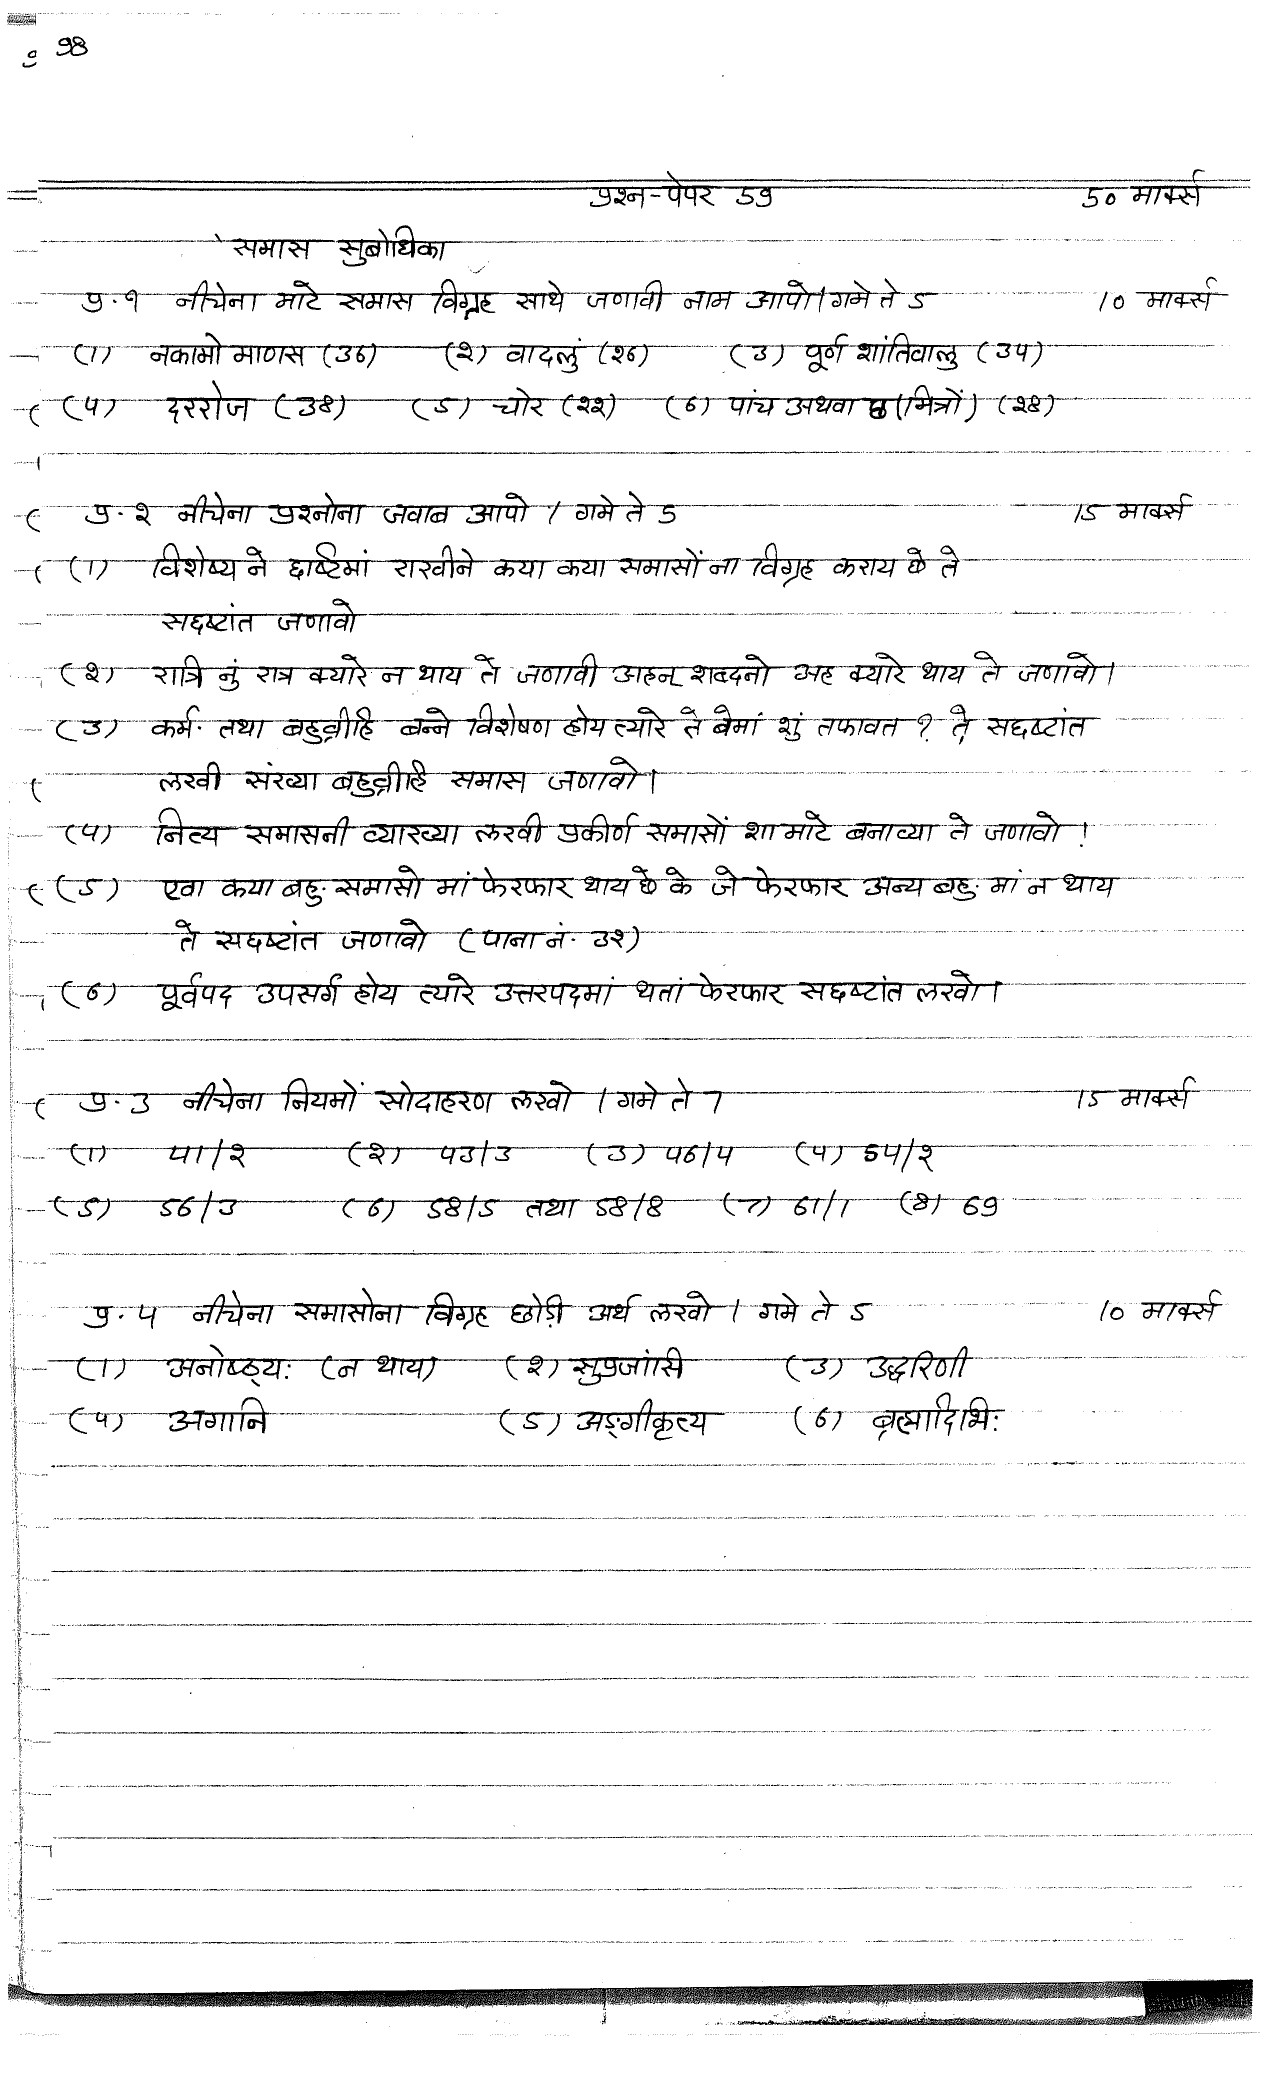 98
प्रश्न-पेपर 59 50 मार्क्स
समास सुबोधिका
प्र.१ नीचेना माटे समास विग्रह साथे जणावी नाम आपो। गमे ते 5 10 मार्क्स
(1) नकामो माणस (36) (२) वादलुं (२6) (3) पूर्ण शांतिवालु (3५)
(५) दररोज (38) (5) चोर (२२) (6) पांच अथवा छ (मित्रों) (२8)
प्र.२ नीचेना प्रश्नोना जवाब आपो। गमे ते 5 15 मार्क्स
(1) विशेष्य ने द्दष्टिमां राखीने कया कया समासों ना विग्रह कराय छे ते
सद्दष्टांत जणावो
(२) रात्रि नुं रात्र क्यारे न थाय ते जणावी अहन् शब्दनो अह क्यारे थाय ते जणावो।
(3) कर्म. तथा बहुव्रीहि बन्ने विशेषण होय त्यारे ते बेमां शुं तफावत ? ते सद्दष्टांत
लखी संख्या बहुव्रीहि समास जणावो।
(५) नित्य समासनी व्याख्या लखी प्रकीर्ण समासों शा माटे बनाव्या ते जणावो।
(5) एवा कया बहु. समासो मां फेरफार थाय छे के जे फेरफार अन्य बहु. मां न थाय
ते सद्दष्टांत जणावो (पाना नं. 3२)
(6) पूर्वपद उपसर्ग होय त्यारे उत्तरपदमां थतां फेरफार सद्दष्टांत लखो।
प्र.3 नीचेना नियमों सोदाहरण लखो। गमे ते 7 15 मार्क्स
(1) ५1/२ (२) ५3/3 (3) ५6/५ (५) 5५/२
(5) 56/3 (6) 58/5 तथा 58/8 (7) 61/1 (8) 69
प्र.५ नीचेना समासोना विग्रह छोडी अर्थ लखो। गमे ते 5 10 मार्क्स
(1) अनोष्ठ्यः (न थाय) (२) सुप्रजांसि (3) उद्धरिणी
(५) अगानि (5) अङ्गीकृत्य (6) ब्रह्मादिभिः